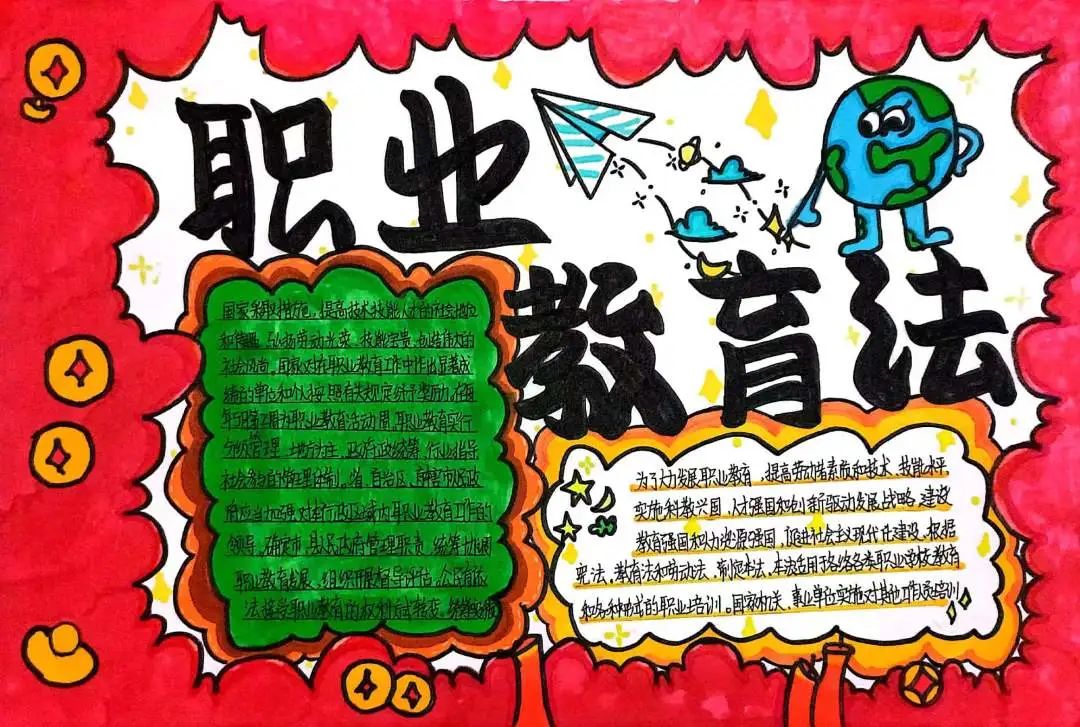 职业
教育法
国家采取措施，提高技术技能人才的社会地位
和待遇，弘扬劳动光荣、技能宝贵、创造伟大的
社会风尚。国家对在职业教育工作中作出显著成
绩的单位和个人按照有关规定给予奖励，在每
年5月第二周为职业教育活动周。职业教育实行
管理、地方为主、政府统筹、行业指导
社会参与的管理体制。省、自治区、直辖市政
府应当加强对本行政区域内职业教育工作的
领导，确定市、县人民政府管理职责，统筹协调
职业教育发展，组织开展督导评估。公民有依
法接受职业教育的权利
为了大力发展职业教育，提高劳动者素质和技术、技能水平，
实施科教兴国，人才强国和创新驱动发展战略，建设
教育强国和人力资源强国，促进社会主义现代化建设，根据
宪法，教育法和劳动法，制定本法。本法适用于各级各类职业学校教育
和各种形式的职业培训。国家机关、事业单位实施对其他工作人员培训